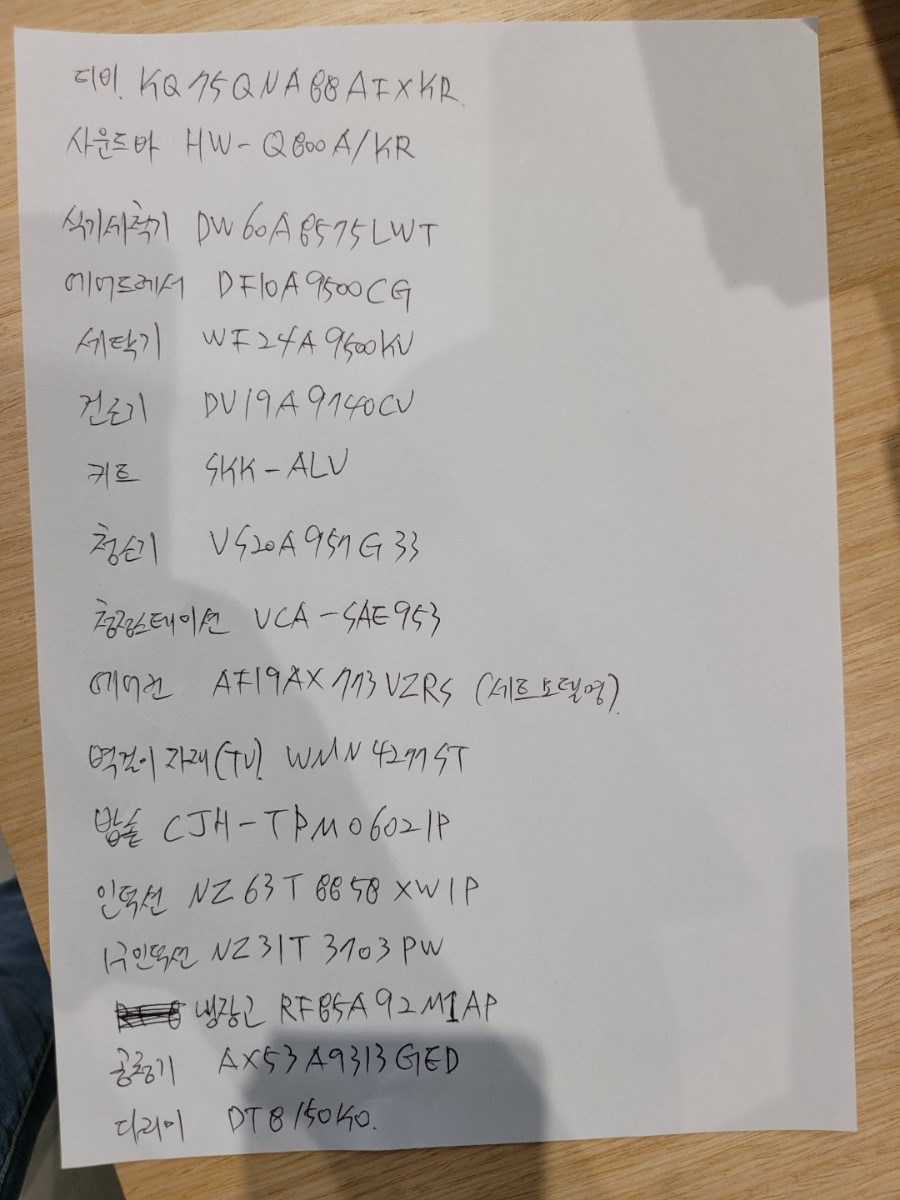 티비. KQ75QNA88AFXKR.
사운드바 HW-Q800A/KR
식기세척기 DW60A8575LWT
에어드레서 DF10A9500CG
세탁기 WF24A9500KV
건조기 DV19A9740CV
키트 SKK-ALV
청소기 VS20A957G33
청정스테이션 VCA-SAE953
에어컨 AF19AX773VZRS (세트모델명).
벽걸이 자재(TV). WMN4277ST
밥솥 CJH-TPM0602IP
인덕션 NZ63T8858XW1P
1구인덕션 NZ31T3703PW
냉장고 RF85A92M1AP
공청기 AX53A9313GED
다리미 DT8150K0.